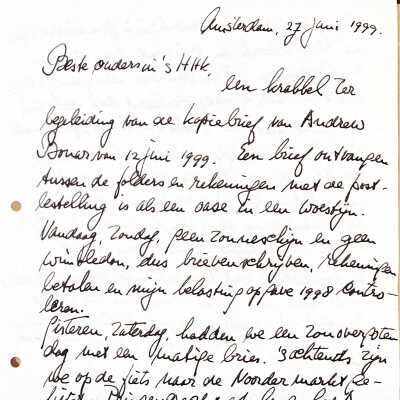 Amsterdam, 27 juni 1999.
Beste ouders in 's HHK,
een krabbel ter
begeleiding van de kopiebrief van Andrew
Bonar van 12 juni 1999. Een brief ontvangen
tussen de folders en rekeningen met de post-
bestelling is als een oase in een woestijn.
Vandaag, Zondag, geen zonneschijn en geen
wimbledon, dus brieven schrijven, rekeningen
betalen en mijn belasting opgave 1998 contro-
leren.
Gisteren, Zaterdag, hadden we een zonovergoten
dag met een matige bries. 's ochtends zijn
we op de fiets naar de Noordermarkt ge-